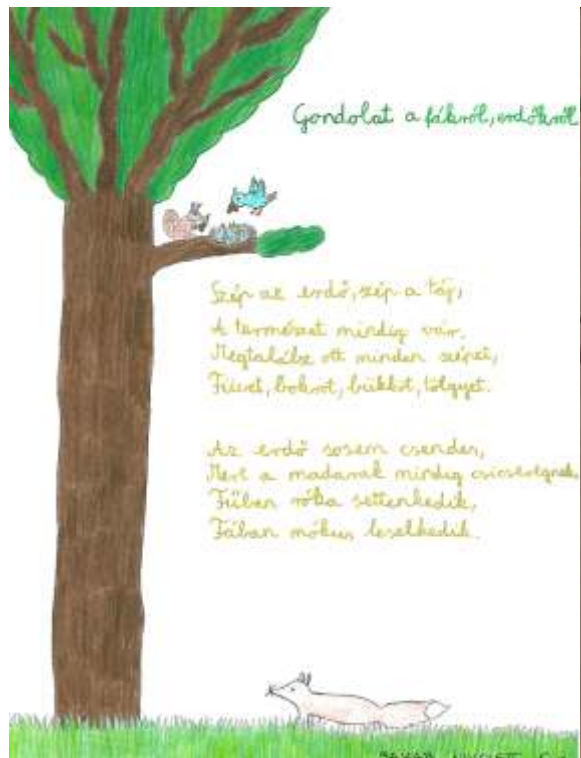 Gondolat a fákról, erdőkről
Szép az erdő, szép a táj,
A természet mindig vár,
Megtalálsz ott minden szépet,
Füvet, bokrot, bükköt, tölgyet.
Az erdő sosem csendes,
Mert a madarak mindig csicseregnek,
Fűben róka settenkedik,
Fában mókus leselkedik.